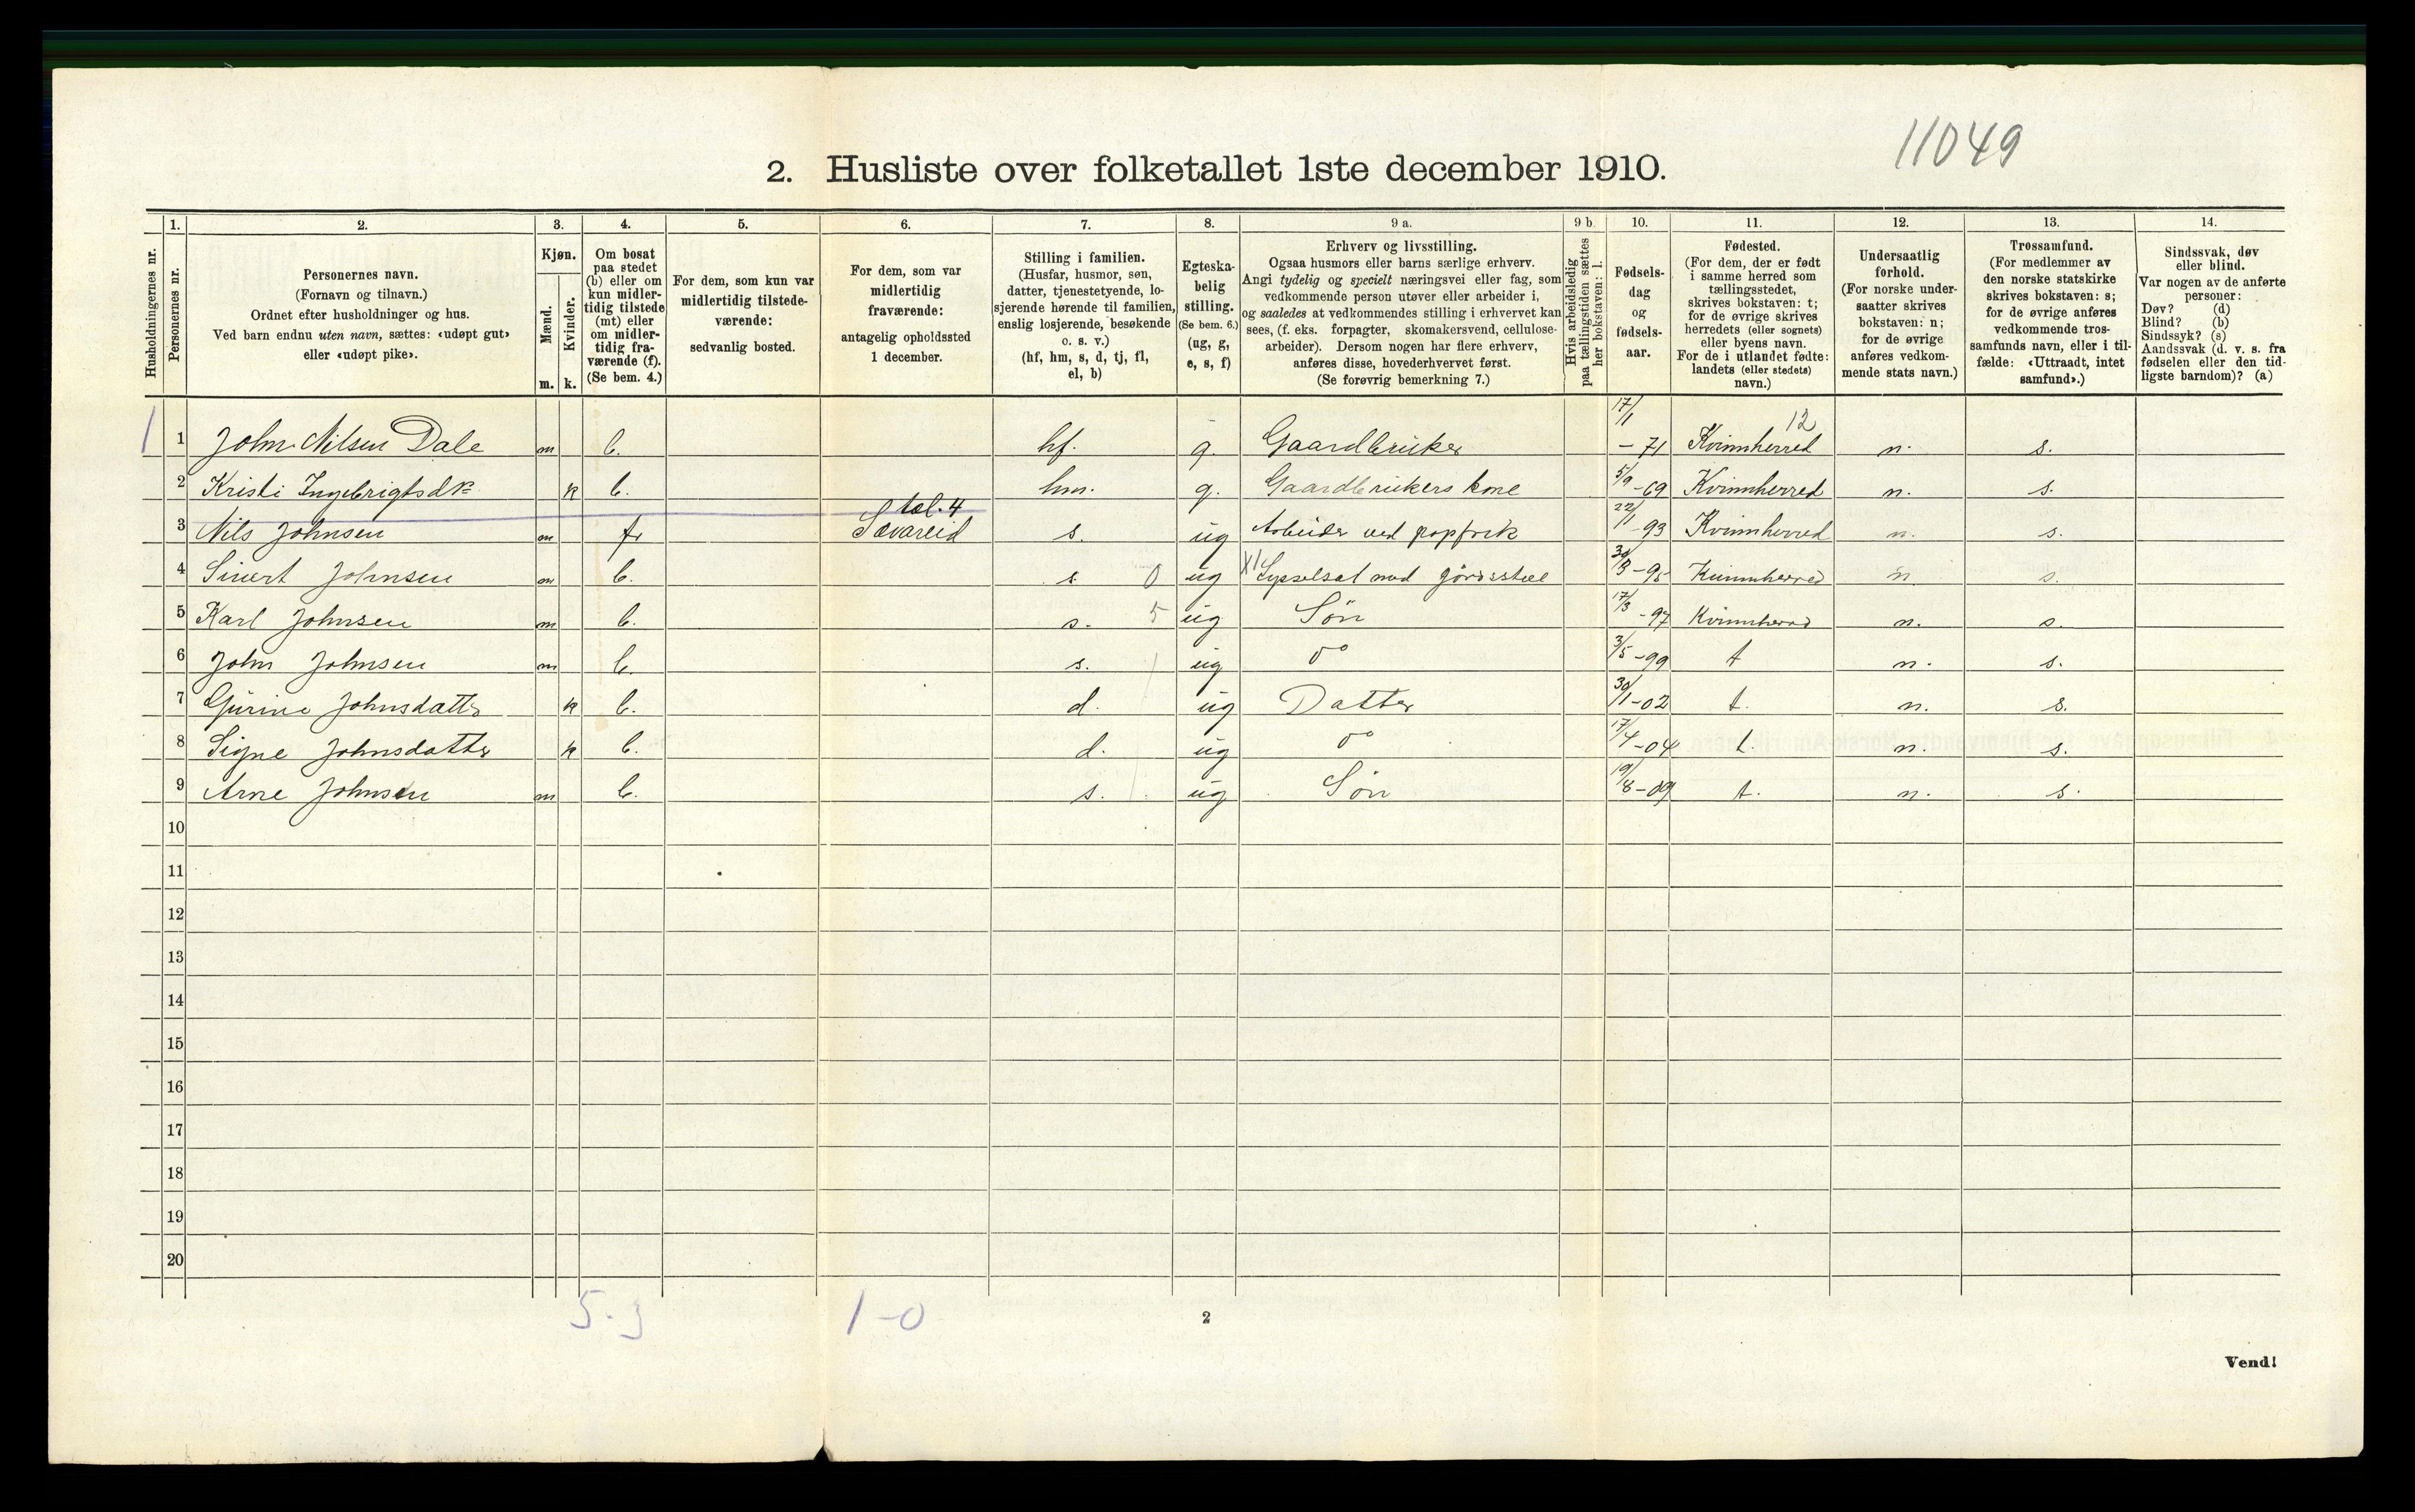 11049
2. Husliste over folketallet 1ste december 1910.
1. 2. 3. 4. 5. 6. 7. 8. 9 a. 9 b 10. 11. 12. 13. 14.
Husholdningernes nr.
Personernes nr.
Personernes navn.
(Fornavn og tilnavn.)
Ordnet efter husholdninger og hus.
Ved barn endnu uten navn, sættes: «udøpt gut»
eller «udøpt pike».
Kjøn.
Mænd.
Kvinder.
m. k.
Om bosat
paa stedet
(b) eller om
kun midler-
tidig tilstede
(mt) eller
om midler-
tidig fra-
værende (f).
(Se bem. 4.)
For dem, som kun var
midlertidig tilstede-
værende:
sedvanlig bosted.
For dem, som var
midlertidig
fraværende:
antagelig opholdssted
1 december.
Stilling i familien.
(Husfar, husmor, søn,
datter, tjenestetyende, lo-
sjerende hørende til familien,
enslig losjerende, besøkende
o. s. v.)
(hf, hm, s, d, tj, fl,
el, b)
Egteska-
belig
stilling.
(Se bem. 6.)
(ug, g,
e, s, f)
Erhverv og livsstilling.
Ogsaa husmors eller barns særlige erhverv.
Angi tydelig og specielt næringsvei eller fag, som
vedkommende person utøver eller arbeider i,
og saaledes at vedkommendes stilling i erhvervet kan
sees, (f. eks. forpagter, skomakersvend, cellulose-
arbeider). Dersom nogen har flere erhverv,
anføres disse, hovederhvervet først.
(Se forøvrig bemerkning 7.)
Hvis arbeidsledig
paa tællingstiden sættes
her bokstaven: l.
Fødsels-
dag
og
fødsels-
aar.
Fødested.
(For dem, der er født
i samme herred som
tællingsstedet,
skrives bokstaven: t;
for de øvrige skrives
herredets (eller sognets)
eller byens navn.
For de i utlandet fødte:
landets (eller stedets)
navn.)
Undersaatlig
forhold.
(For norske under-
saatter skrives
bokstaven: n;
for de øvrige
anføres vedkom-
mende stats navn.)
Trossamfund.
(For medlemmer av
den norske statskirke
skrives bokstaven: s;
for de øvrige anføres
vedkommende tros-
samfunds navn, eller i til-
fælde: «Uttraadt, intet
samfund».)
Sindssvak, døv
eller blind.
Var nogen av de anførte
personer:
Døv? (d)
Blind? (b)
Sindssyk? (s)
Aandssvak (d. v. s. fra
fødselen eller den tid-
ligste barndom)? (a)
1 1 John Nilsen Dale m b. hf. g. Gaardbruker 17/1 - 71 Kvinnherred 12 n. s.
2 Kristi Ingebrigtsdtr k b. hm. g. Gaardbrukers kone 5/9 -69 Kvinnherred n. s.
tel. 4
3 Nils Johnsen m f Sævareid s. ug Arbeider ved papfrik 22/1 -93 Kvinnherred n. s.
4 Sivert Johnsen m b. s. 0 ug Sysselsat med gårdsstell 30/3 -95 Kvinnherred n s.
5 Karl Johnsen m b. s. 5 ug Søn 17/3 -97 Kvinnherred n. s.
6 John Johnsen m b. s. ug do 3/5 -99 t n. s.
7 Gurine Johnsdatter k b. d. ug Datter 30/1 -02 t. n. s.
8 Signe Johnsdatter k b. d. ug do 17/4 -04 t. n. s.
9 Arne Johnsen m b. s. ug Søn 19/8 -09 t. n. s.
10
11
12
13
14
15
16
17
18
19
20
5. 3 1-0
2
Vend!